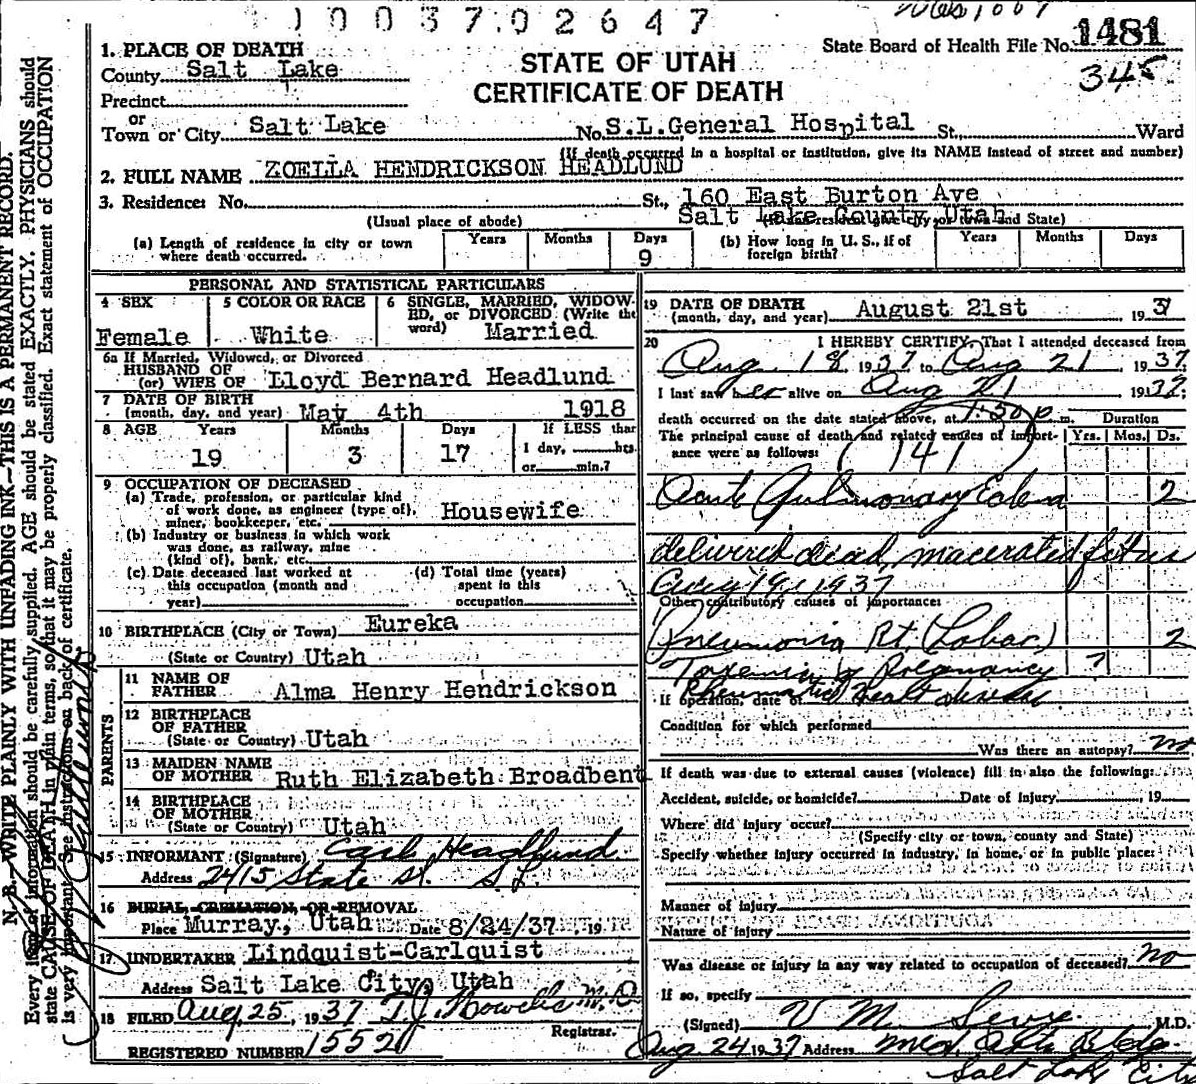 1003702647
1481
State Board of Health File No.
345
STATE OF UTAH
CERTIFICATE OF DEATH
1. PLACE OF DEATH
County Salt Lake
Precinct
or
Town or City Salt Lake No. S.L.General Hospital St., Ward
(If death occurred in a hospital or institution, give its NAME instead of street and number)
2. FULL NAME ZOELLA HENDRICKSON HEADLUND
3. Residence: No. St., 160 East Burton Ave
Salt Lake County, Utah
(Usual place of abode)
(a) Length of residence in city or town where death occurred. Years Months Days 9
(b) How long in U. S., if of foreign birth? Years Months Days
PERSONAL AND STATISTICAL PARTICULARS
4 SEX Female
5 COLOR OR RACE White
6 SINGLE, MARRIED, WIDOWED, or DIVORCED (Write the word) Married
6a If Married, Widowed, or Divorced
HUSBAND OF
(or) WIFE OF Lloyd Bernard Headlund
7 DATE OF BIRTH
(month, day, and year) May 4th 1918
8 AGE Years Months Days If LESS than
19 3 17 1 day, hrs.
or min.?
9 OCCUPATION OF DECEASED
(a) Trade, profession, or particular kind
of work done, as engineer (type of), Housewife
miner, bookkeeper, etc.
(b) Industry or business in which work
was done, as railway, mine
(kind of), bank, etc.
(c) Date deceased last worked at
this occupation (month and
year)
(d) Total time (years)
spent in this
occupation
10 BIRTHPLACE (City or Town) Eureka
(State or Country) Utah
PARENTS
11 NAME OF
FATHER Alma Henry Hendrickson
12 BIRTHPLACE
OF FATHER
(State or Country) Utah
13 MAIDEN NAME
OF MOTHER Ruth Elizabeth Broadbent
14 BIRTHPLACE
OF MOTHER
(State or Country) Utah
15 INFORMANT (Signature) Carl Headlund
Address 2415 State St. S.L.
16 BURIAL, CREMATION, OR REMOVAL
Place Murray, Utah Date 8/24/37, 19
17. UNDERTAKER Lindquist-Carlquist
Address Salt Lake City, Utah
18 FILED Aug, 25, 1937 T.J. Howells M.D.
Registrar.
REGISTERED NUMBER 1552
19 DATE OF DEATH
(month, day, and year) August 21st, 193
20 I HEREBY CERTIFY, That I attended deceased from
Aug. 18 1937 to Aug 21, 1937
I last saw her alive on Aug 21 193
death occurred on the date stated above, at 1:50 p. m. Duration
The principal cause of death and related causes of import- Yrs. Mos. Ds.
ance were as follows: (141)
Acute Pulmonary Edema 2
delivered dead, macerated fetus
Aug 19, 1937
Other contributory causes of importance:
Pneumonia Rt. (Lobar) 2
Toxemia of Pregnancy ?
Rheumatic Heart disease
If operation, date of
Condition for which performed
Was there an autopsy? no
If death was due to external causes (violence) fill in also the following:
Accident, suicide, or homicide? Date of injury, 19
Where did injury occur?
(Specify city or town, county and State)
Specify whether injury occurred in industry, in home, or in public place:
Manner of injury
Nature of injury
Was disease or injury in any way related to occupation of deceased? no
If so, specify
(Signed) V M M.D.
Aug 24 1937 Address Med. Arts Bldg.
Salt Lake City
N. B.—WRITE PLAINLY WITH UNFADING INK—THIS IS A PERMANENT RECORD.
Every item of information should be carefully supplied. AGE should be stated EXACTLY. PHYSICIANS should
state CAUSE OF DEATH in plain terms, so that it may be properly classified. Exact statement of OCCUPATION
is very important. See instructions on back of certificate.